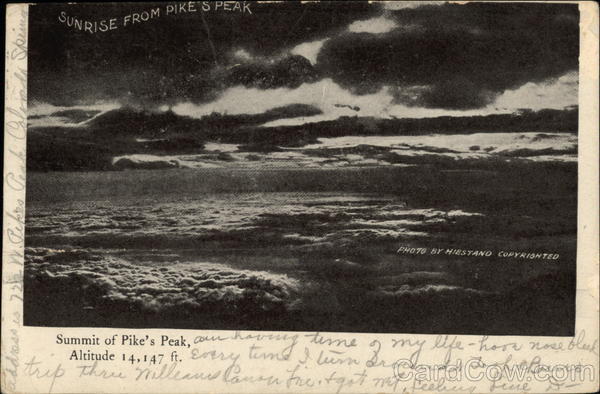 SUNRISE FROM PIKE'S PEAK
PHOTO BY HIESTAND COPYRIGHTED
Summit of Pike's Peak,
Altitude 14,147 ft.
am having time of my life - have nose bleed
every time I turn around
trip thru Williams Canon
got wet, feeling fine
Address is 722 W Pikes Peak Colorado Springs
CardCow.com